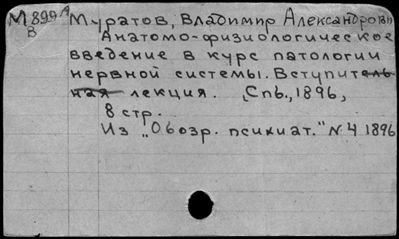 М 899 А Муратов, Владимир Александрови
В Анатомо-физиологическое
введение в курс патологии
нервной системы. Вступитель-
ная лекция. Спб., 1896,
8 стр.
Из "Обозр. психиат." N 4 1896